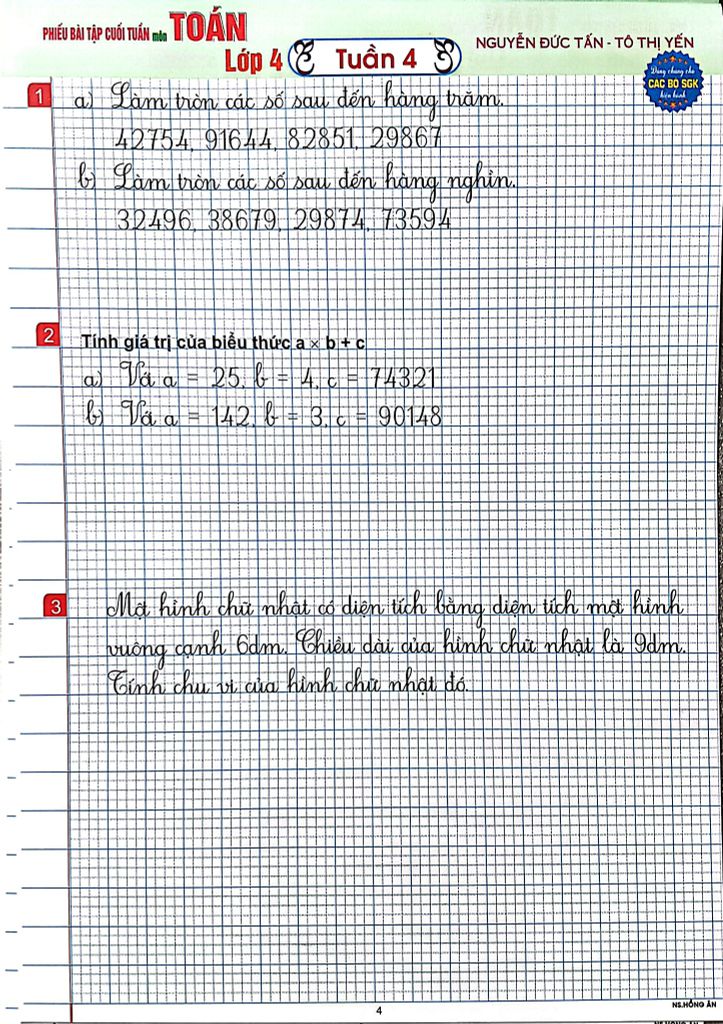 PHIẾU BÀI TẬP CUỐI TUẦN môn TOÁN
Lớp 4 Tuần 4
NGUYỄN ĐỨC TẤN - TÔ THỊ YẾN
Dùng chung cho
CÁC BỘ SGK
hiện hành
1 a) Làm tròn các số sau đến hàng trăm.
42754, 91644, 82851, 29867
b) Làm tròn các số sau đến hàng nghìn.
32496, 38679, 29874, 73594
2 Tính giá trị của biểu thức a × b + c
a) Với a = 25, b = 4, c = 74321
b) Với a = 142, b = 3, c = 90148
3 Một hình chữ nhật có diện tích bằng diện tích một hình
vuông cạnh 6dm. Chiều dài của hình chữ nhật là 9dm.
Tính chu vi của hình chữ nhật đó.
4
NS.HỒNG ÂN